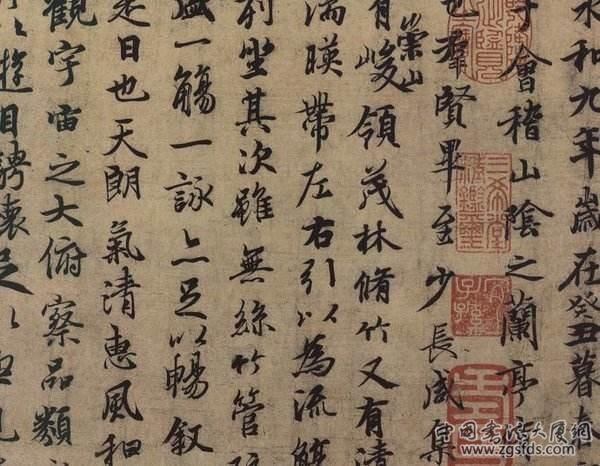 永和九年歲在癸丑暮春
于會稽山陰之蘭亭
也羣賢畢至少長咸集
有崇山峻領茂林脩竹又有清
湍暎帶左右引以為流觴
列坐其次雖無絲竹管
盛一觴一詠亦足以暢叙
是日也天朗氣清惠風和
觀宇宙之大俯察品類
以遊目騁懷足以極
三希堂精鑑璽
宜子孫
www.zgsfds.com